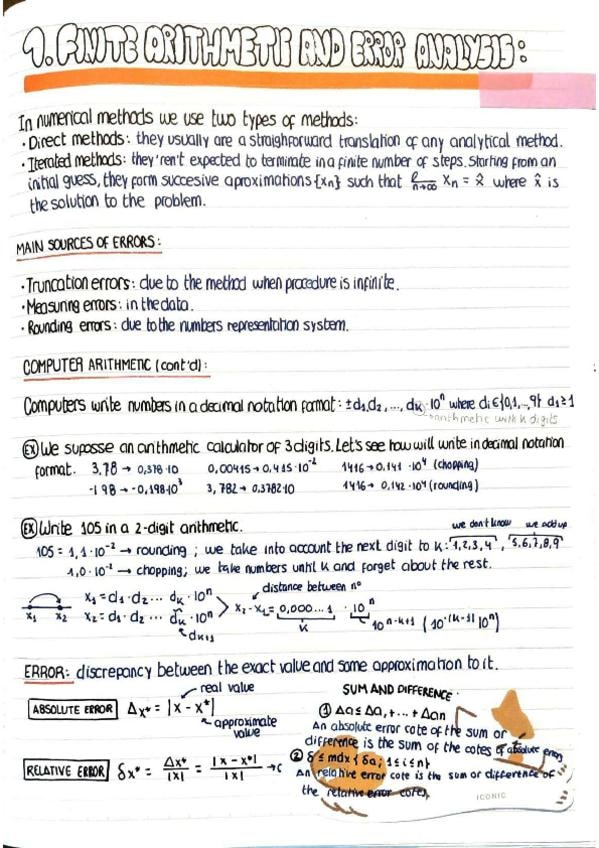 1. FINITE ARITHMETIC AND ERROR ANALYSIS:
In numerical methods we use two types of methods:
· Direct methods: they usually are a straighforward translation of any analytical method.
· Iterated methods: they'ren't expected to terminate in a finite number of steps. Starting from an
initial guess, they form succesive aproximations {xn} such that ℓ n→∞ Xn = x̂ where x̂ is
the solution to the problem.
MAIN SOURCES OF ERRORS:
· Truncation errors: due to the method when procedure is infinite.
· Measuring errors: in the data.
· Rounding errors: due to the numbers representation system.
COMPUTER ARITHMETIC (cont'd):
Computers write numbers in a decimal notation format: ±d1,d2,...,dk·10ⁿ where di∈{0,1,..,9} d1≥1
arithmetic with k digits
(EX) We suposse an arithmetic calculator of 3 digits. Let's see how will write in decimal notation
format. 3,78 → 0,378·10 0,00415→0,415·10⁻² 1416→0,141·10⁴ (chopping)
-198→-0,198·10³ 3,782→0,378210 1416→0,142·10⁴ (rounding)
(EX) Write 105 in a 2-digit arithmetic. we don't know we add up
105 = 1,1·10⁻² → rounding; we take into account the next digit to k: 1,2,3,4, 5,6,7,8,9
1,0·10⁻² → chopping; we take numbers until k and forget about the rest.
distance between nº
x1 = d1·d2... dk·10ⁿ
x1 x2 x2 = d1·d2... dk·10ⁿ > x2-x1 = 0,000...1 · 10ⁿ
dk+1 k 10ⁿ⁻ᵏ⁺¹ (10⁻⁽ᵏ⁻¹⁾ 10ⁿ)
ERROR: discrepancy between the exact value and some approximation to it.
real value
ABSOLUTE ERROR Δx* = |x - x*|
approximate
value
RELATIVE ERROR δx* = Δx*/|x| = |x - x*|/|x| → c
SUM AND DIFFERENCE·
① Δa ≤ Δa1 + ... + Δan
An absolute error cote of the sum or
difference is the sum of the cotes of absolute errors
② δ ≤ max {δai; 1≤i≤n}
An relative error cote is the sum or difference of
the relative error cotes,
ICONIC